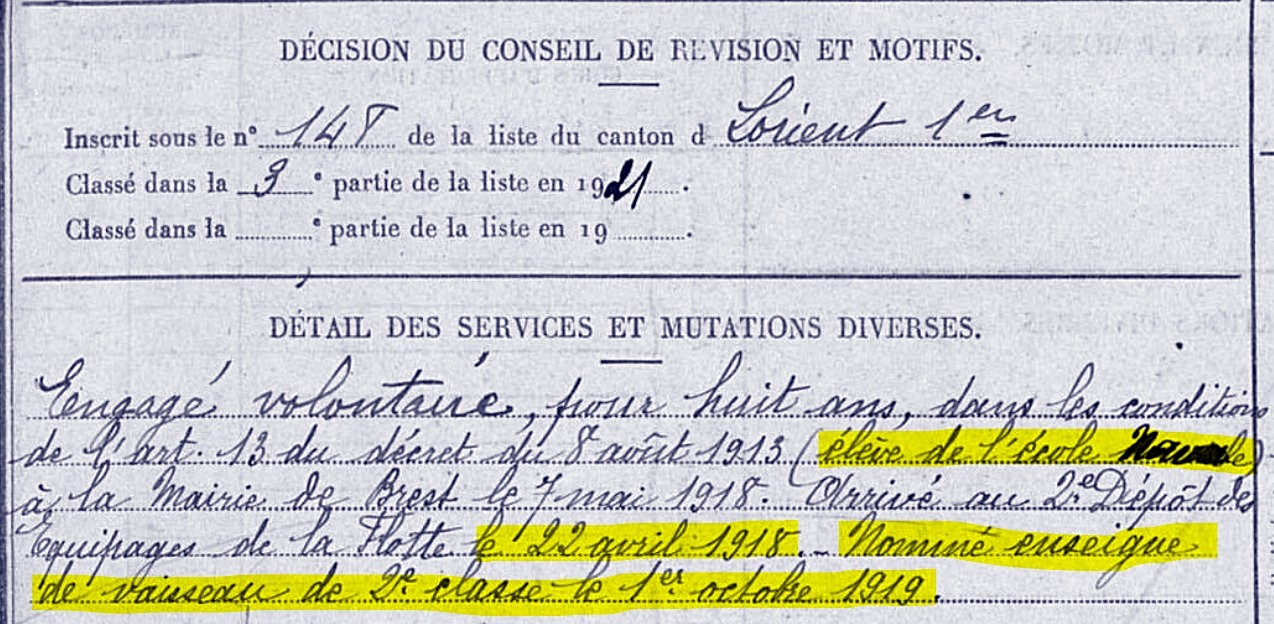 DÉCISION DU CONSEIL DE REVISION ET MOTIFS.
Inscrit sous le n° 148 de la liste du canton d Lorient 1er
Classé dans la 3e partie de la liste en 1921.
Classé dans la e partie de la liste en 19 .
DÉTAIL DES SERVICES ET MUTATIONS DIVERSES.
Engagé volontaire, pour huit ans, dans les conditions
de l'art. 13 du décret du 8 août 1913 (élève de l'école Navale)
à la Mairie de Brest le 7 mai 1918. Arrivé au 2e Dépôt des
Equipages de la Flotte le 22 avril 1918. - Nommé enseigne
de vaisseau de 2e classe le 1er octobre 1919.